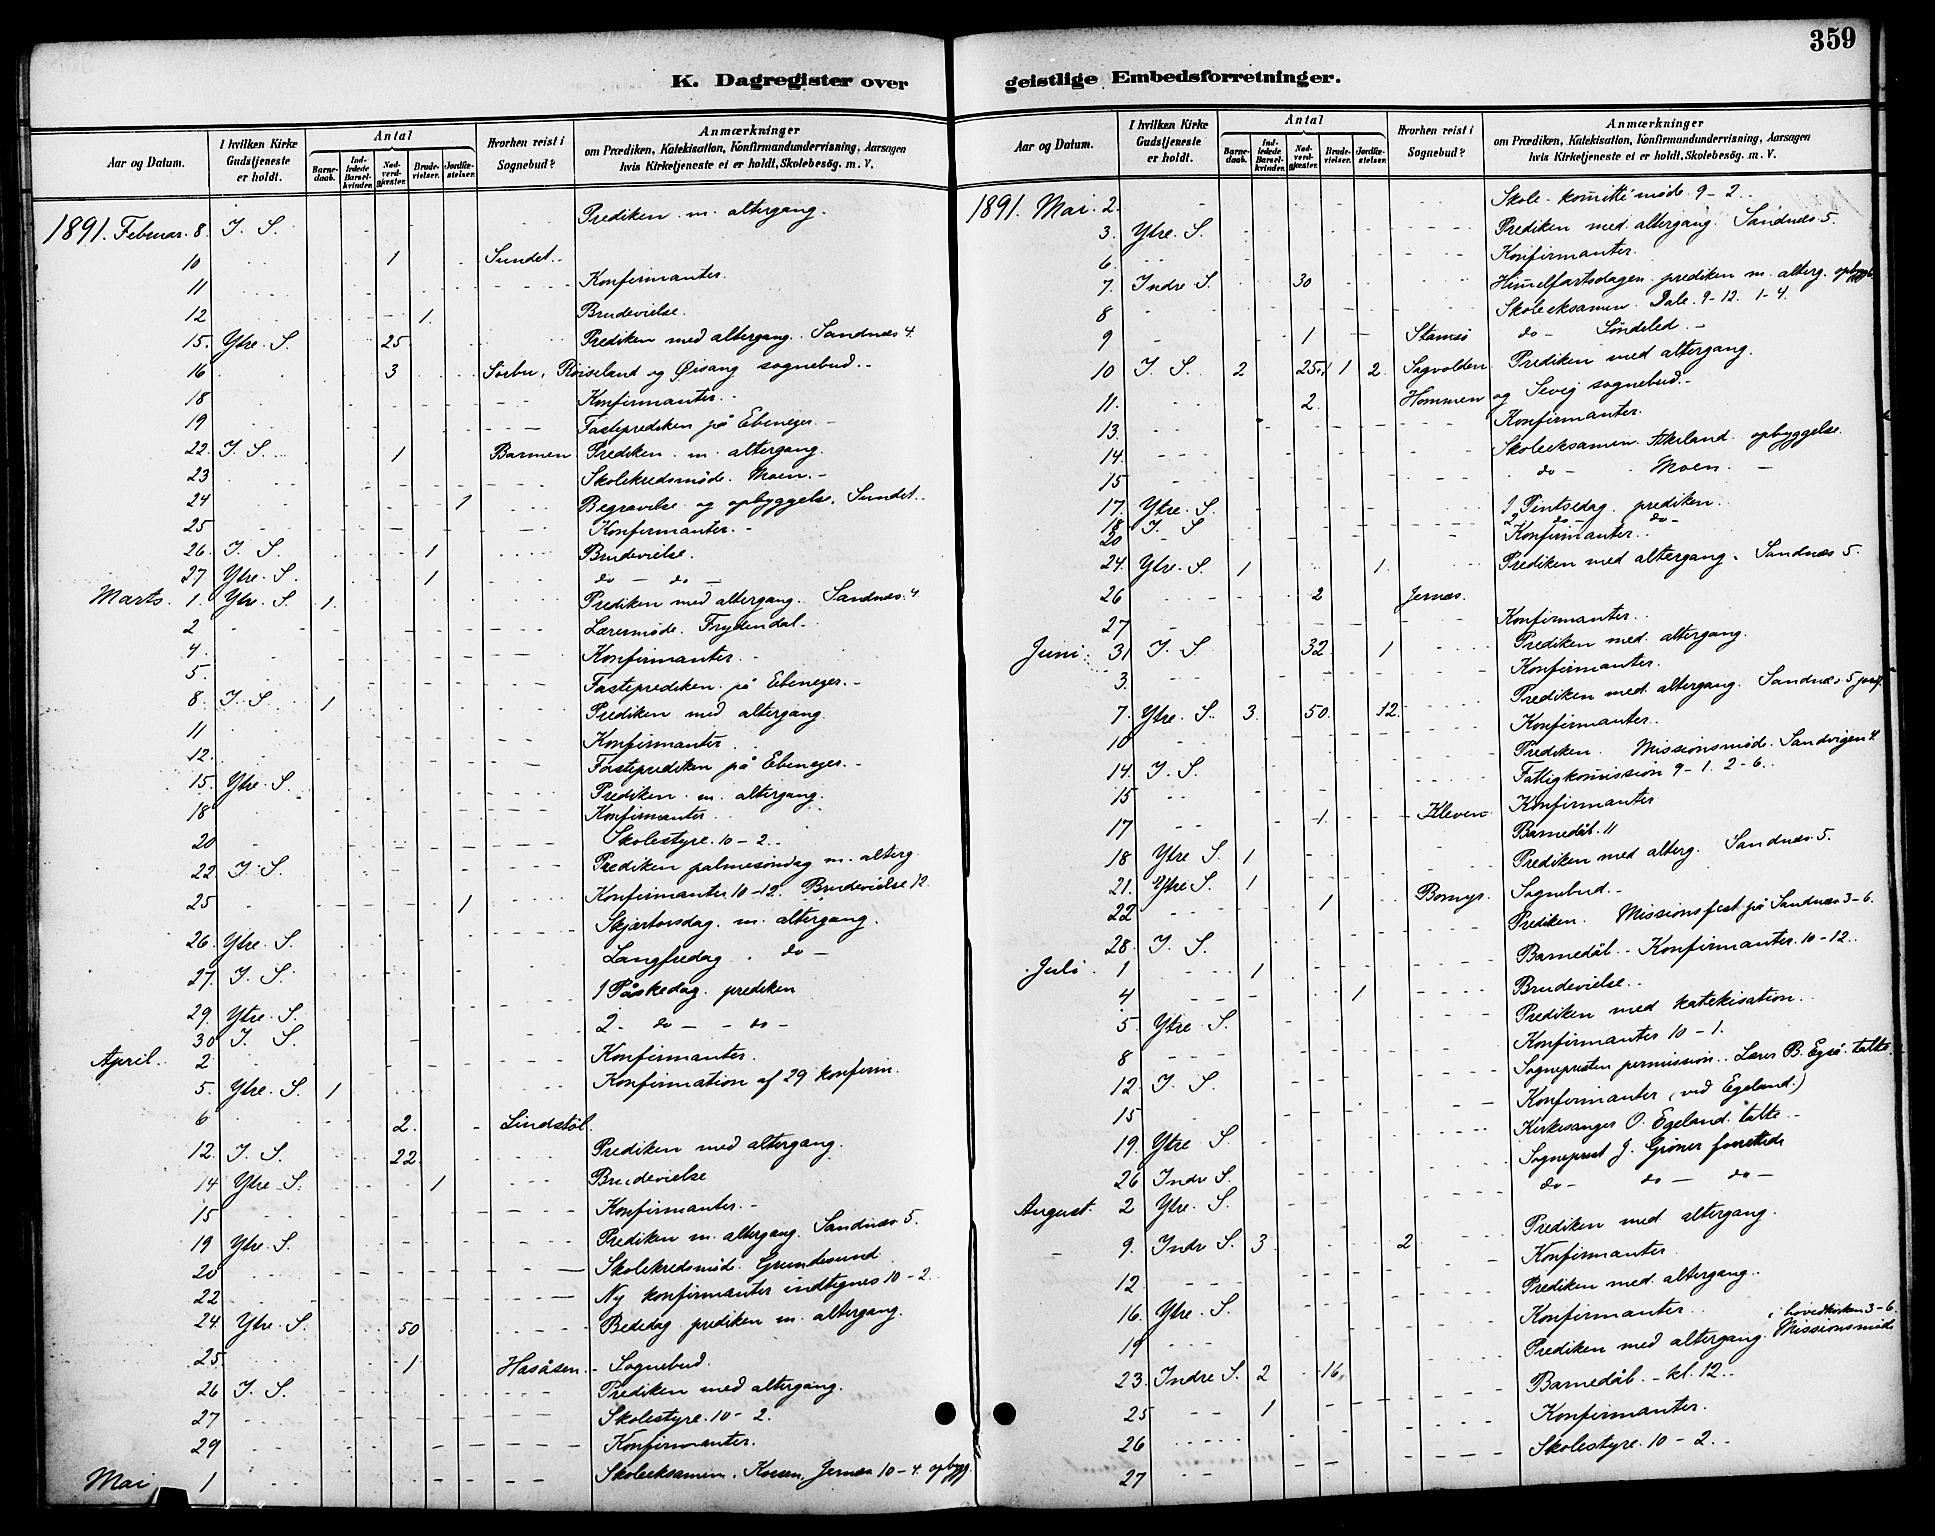 359
K. Dagregister over geistlige Embedsforretninger.
Aar og Datum. I hvilken Kirke Gudstjeneste er holdt. Antal Barnedaab. Indledede Barselkvinder. Nadverdgjæster. Brudevielser. Jordfæstelser. Hvorhen reist i Sognebud? Anmærkninger om Prædiken, Katekisation, Konfirmandundervisning, Aarsagen hvis Kirketjeneste ei er holdt, Skolebesög. m. V.
1891. Februar. 8. I. S. Prediken m. altergang.
10 1 Sundet.
11 Konfirmanter.
12 1. Brudevielse.
15. Ytre. S. 25 Prediken med altergang. Sandnæs 4.
16 3 Sørbu, Røiseland og Øisang sognebud.
18 Konfirmanter.
19 Fasteprediken på Ebeneser.
22. I. S. 1 Barmen Prediken m. altergang.
23 Skolekredsmøde. Moen.
24 1 Begravelse og opbyggelse. Sundet.
25 Konfirmanter.
26. I. S. 1 Brudevielse.
27 Ytre. S. 1 do - do -
Marts. 1. Ytr. S. 1. Prediken med altergang. Sandnæs. 4
2 Lærermøde. Frydendal.
4. Konfirmanter.
5. Fasteprediken på Ebeneser.
8. I. S. 1 Prediken med altergang.
11 Konfirmanter.
12. Fasteprediken på Ebeneser.
15. Ytre. S. Prediken m. altergang.
18 Konfirmanter.
20 Skolestyre. 10 - 2.
22 I. S. Prediken palmesøndag m. alterg.
25 1 Konfirmanter 10-12. Brudevielse 12.
26. Ytre. S. Skjærtorsdag. m. altergang.
27. I. S. Langfredag. do -
29. Ytre. S. 1 Påskedag. prediken
30 I. S. 2. do - - do -
April. 2 Konfirmanter.
5. Ytre. S. 1 Konfirmation af 29 konfirm.
6 2. Lindstøl.
12. I. S. 22. Prediken med altergang.
14 Ytre S. 1 Brudevielse
15 Konfirmanter.
19 Ytre. S. Prediken m. altergang. Sandnæs. 5.
20 Skolekredsmøde. Grundesund
22 Ny konfirmanter indtegnes 10 - 2.
24. Ytre. S. 50 Bededag prediken m. altergang.
25 1. Hasåsen. Sognebud.
26 I. S. Prediken med altergang.
27 Skolestyre. 10 - 2.
29 Konfirmanter.
Mai 1 Skoleeksamen. Jernæs 10 - 4. opbygg.
Aar og Datum. I hvilken Kirke Gudstjeneste er holdt. Antal Barnedaab. Indledede Barselkvinder. Nadverdgjæster. Brudevielser. Jordfæstelser. Hvorhen reist i Sognebud? Anmærkninger om Prædiken, Katekisation, Konfirmandundervisning, Aarsagen hvis Kirketjeneste ei er holdt, Skolebesög. m. V.
1891. Mai. 2. Skole-komitémøde. 9 - 2.
3. Ytre. S. Prediken med altergang. Sandnæs. 5.
6. Konfirmanter.
7. Indre S. 30 Himelfartsdagen. prediken m. alterg. opbygg.
8 Skoleeksamen. Dale. 9-12. 1-4.
9 1 Stamsø do - Søndeled.
10 I. S. 2 25. 1 2. Sagvolden Prediken med altergang.
11. 2. Hommen og Sevig sognebud.
13. Konfirmanter.
14. Skoleeksamen. Akland. opbyggelse.
15 do - Moen. -
17. Ytre. S. 1 Pintsedag. prediken.
18 I. S 2 do - do -
20 Konfirmanter.
24. Ytre. S. 1 1. Prediken med altergang. Sandnæs 5.
26 2 Jernæs.
27 Konfirmanter.
Juni. 31 I. S 32. 1 Prediken med. altergang.
3. Konfirmanter.
7. Ytre. S. 3. 50. 12. Prediken med. altergang. Sandnæs 5
10 Konfirmanter.
14. I. S. Prediken. Missionsmøde. Sandvigen 4.
15 Fattigkomission 9 - 1. 2 - 6.
17 1 Kleven Konfirmanter
18 Ytre S. 1 Barnedåb. 11
21. Ytre S. 1 Prediken med alterg. Sandnæs. 5.
22 1 Sognebud.
28. I. S. Prediken. Missionsfest på Sandnæs 3-6.
Juli. 1 1 Barnedåb. - Konfirmanter. 10 - 12.
4 1 Brudevielse.
5. Ytre S. Prediken med katekisation.
8 Konfirmanter 10 - 1.
12. I. S. Sognepresten permission. Lærer B. talte
15 Konfirmanter (ved Egeland.)
19 Ytre S. Kirkesanger O. Egeland talte.
26 Indre S. Sogneprest J. Grøner forrettede
August. 2 Ytre. S. do - do - do -
9. Indre S. 3 2 Prediken med altergang.
12 Konfirmanter
16. Ytre. S. Prediken med altergang.
19 Konfirmanter
23. Indre S. 2 16. Prediken med altergang. Missionsmøde i hovedkirken 3-6.
25 1 Barnedåb. - kl. 12.
26 Konfirmanter.
27 Skolestyre. 10 - 2.